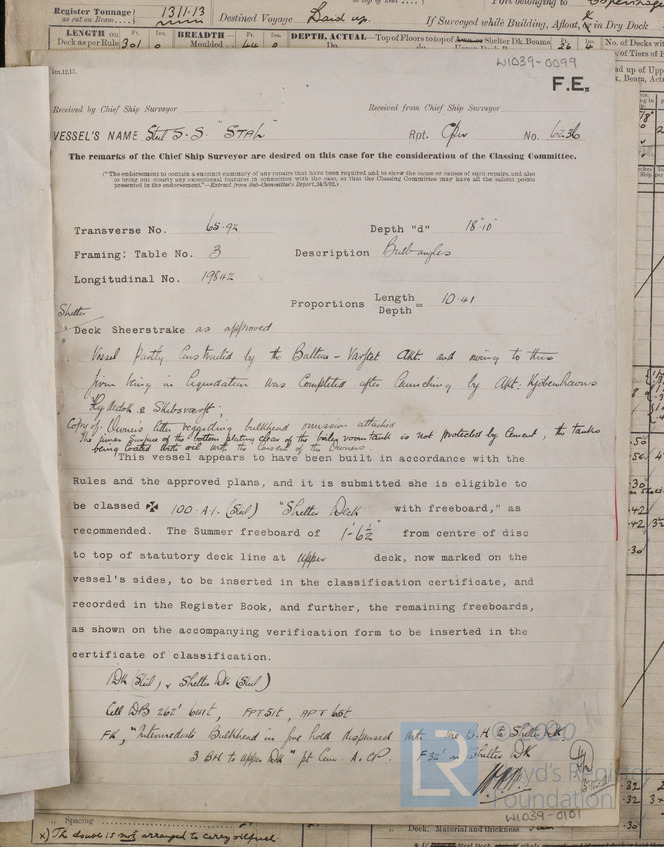 Register Tonnage as cut on Beam 1311.13 Destined Voyage Laid up. If Surveyed while Building, Afloat, or in Dry Dock
LENGTH on Deck as per Rule 301 0 BREADTH Moulded 44 0 DEPTH, ACTUAL—Top of Floors to top of Shelter Dk. Beams 26 No. of Decks
W1039-0099
F.E.
Received by Chief Ship Surveyor
Received from Chief Ship Surveyor
VESSEL'S NAME Steel S.S. "STAL" Rpt. Cpn No. 6236
The remarks of the Chief Ship Surveyor are desired on this case for the consideration of the Classing Committee.
("The endorsement to contain a succinct summary of any repairs that have been required and to show the cause and causes of such repairs, and also
to bring out clearly any exceptional features in connection with the case, so that the Classing Committee may have all the salient points
presented in the endorsement."—Extract from Sub-Committee's Report, 24/3/92.)
Transverse No. 65.92 Depth "d" 18'.10"
Framing: Table No. 3 Description Bulb angles
Longitudinal No. 19842
Proportions Length/Depth = 10.41
Shelter
Deck Sheerstrake as approved
Vessel partly constructed by the Baltica-Varftet Akt. and owing to this
firm being in liquidation was completed after launching by Akt. Kjobenhavns
Flydedok & Skibsvaerft.
Copy of Owners letter regarding bulkhead omission attached
The inner surface of the bottom plating clear of the boiler room tank is not protected by cement, the tanks
being coated with oil with the consent of the Owners.
This vessel appears to have been built in accordance with the
Rules and the approved plans, and it is submitted she is eligible to
be classed ✠ 100.A.1. (Steel) "Shelter Deck with freeboard," as
recommended. The Summer freeboard of 1'-6½" from centre of disc
to top of statutory deck line at upper deck, now marked on the
vessel's sides, to be inserted in the classification certificate, and
recorded in the Register Book, and further, the remaining freeboards,
as shown on the accompanying verification form to be inserted in the
certificate of classification.
1 Dk (Steel) & Shelter Dk (Steel)
Cell DB 262' FPT 51t, APT 65t
"Intermediate Bulkhead in fore hold dispensed with BH to Shelter Dk
3 BH to upper Dk" pt Cem. A.CP. F 32' in Shelter Dk
© 2020
LR
Lloyd's Register
Foundation
W1039-0101
Spacing
Deck. Material and thickness
x) The double is not arranged to carry oil fuel.